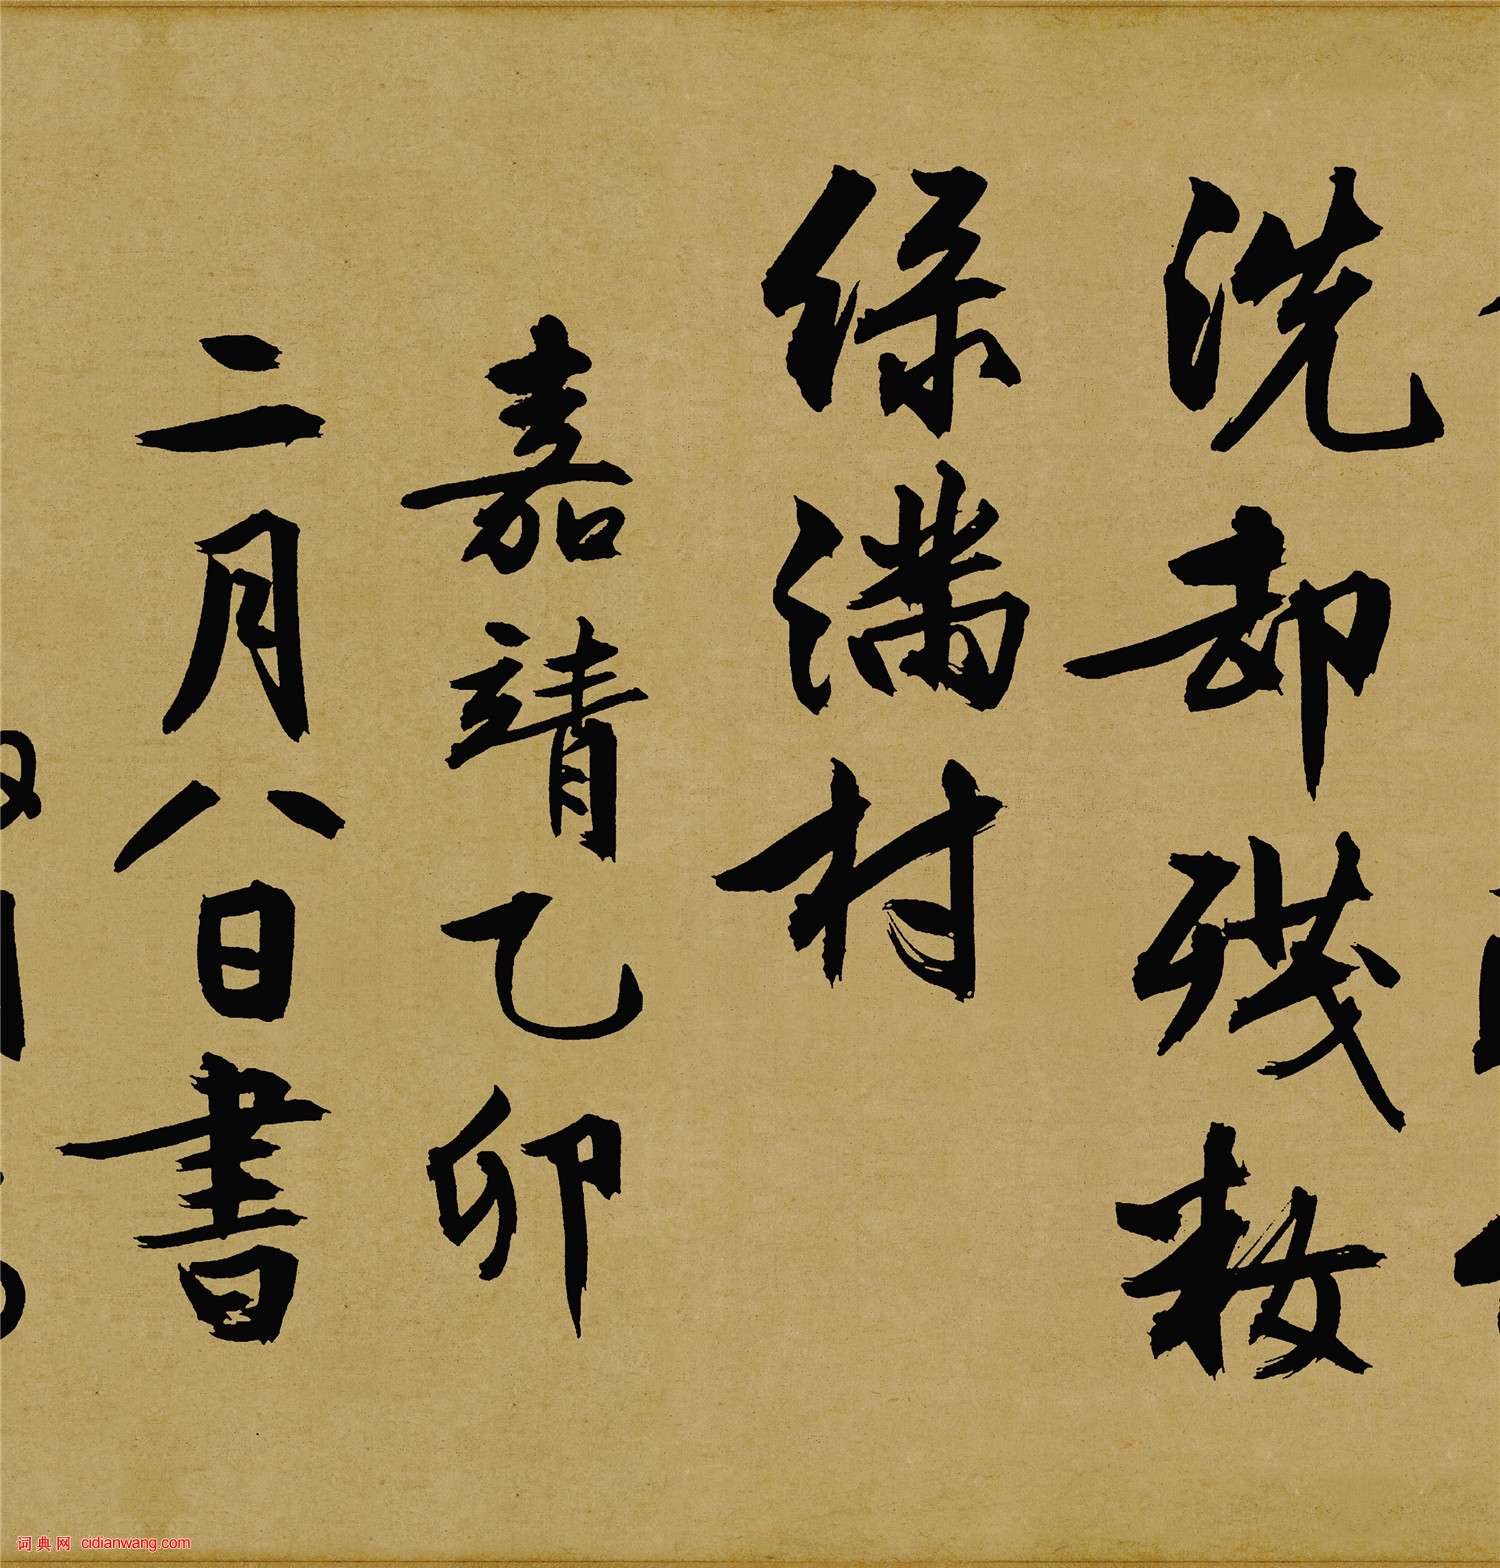 洗却殘妝
綠滿村
嘉靖乙卯
二月八日書
词典网 cidianwang.com